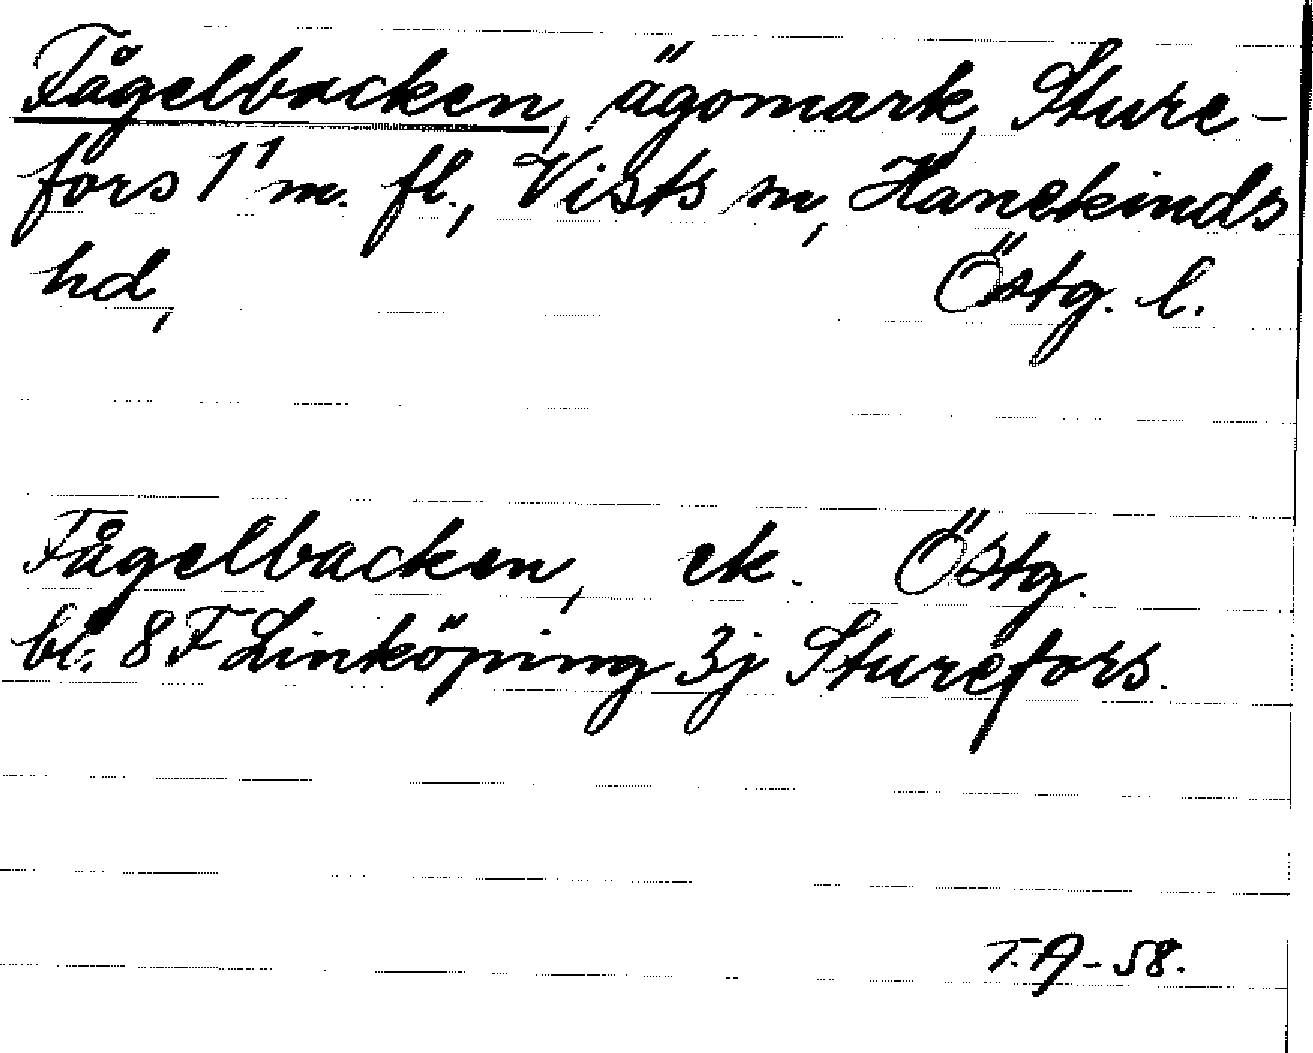 Fågelbacken, ägomark, Sture-
fors 1¹ m. fl., Vists sn, Hanekinds
hd, Östg. l.
Fågelbacken, ek. Östg.
bl. 8F Linköping 3j Sturefors.
T.A-58.